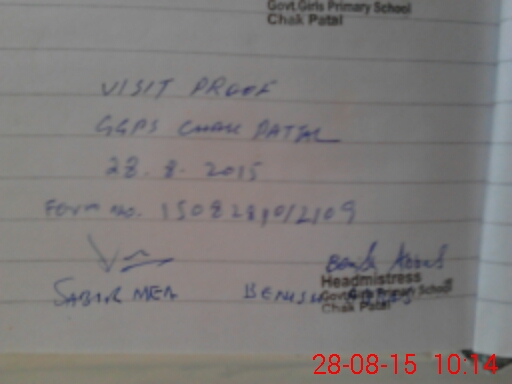 Govt.Girls Primary School
Chak Patal
VISIT PROOF
GGPS CHAK PATAL
28.8.2015
Form no.
SABIR MEA BENISH
Headmistress
Govt.Girls Primary School
Chak Patal
28-08-15 10:14